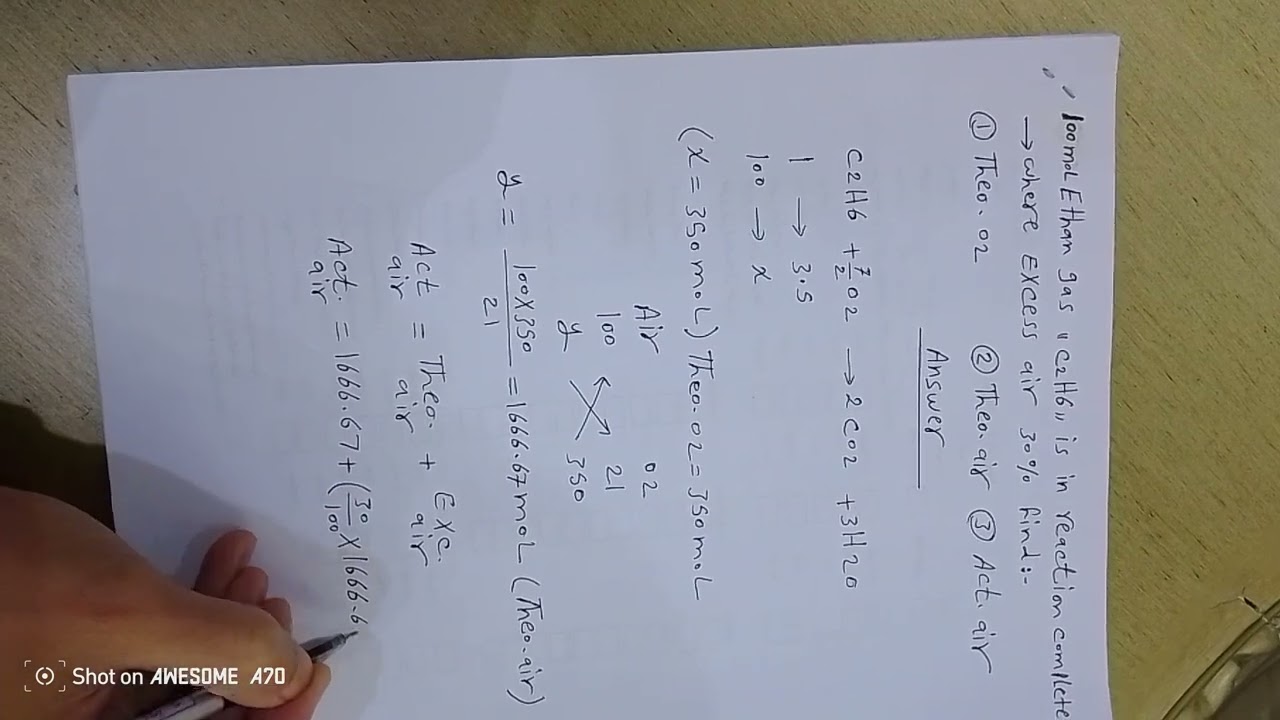 100 mol Ethan gas "C2H6" is in reaction complete
→ where Excess air 30% find:-
① Theo. O2 ② Theo. air ③ Act. air
Answer
C2H6 + 7/2 O2 → 2CO2 + 3H2O
1 → 3.5
100 → x
(x = 350 moL) Theo. O2 = 350 moL
Air O2
100 21
y 350
y = 100X350 / 21 = 1666.67 moL (Theo. air)
Act air = Theo. air + Exc. air
Act. air = 1666.67 + (30/100 X 1666.6
Shot on AWESOME A70